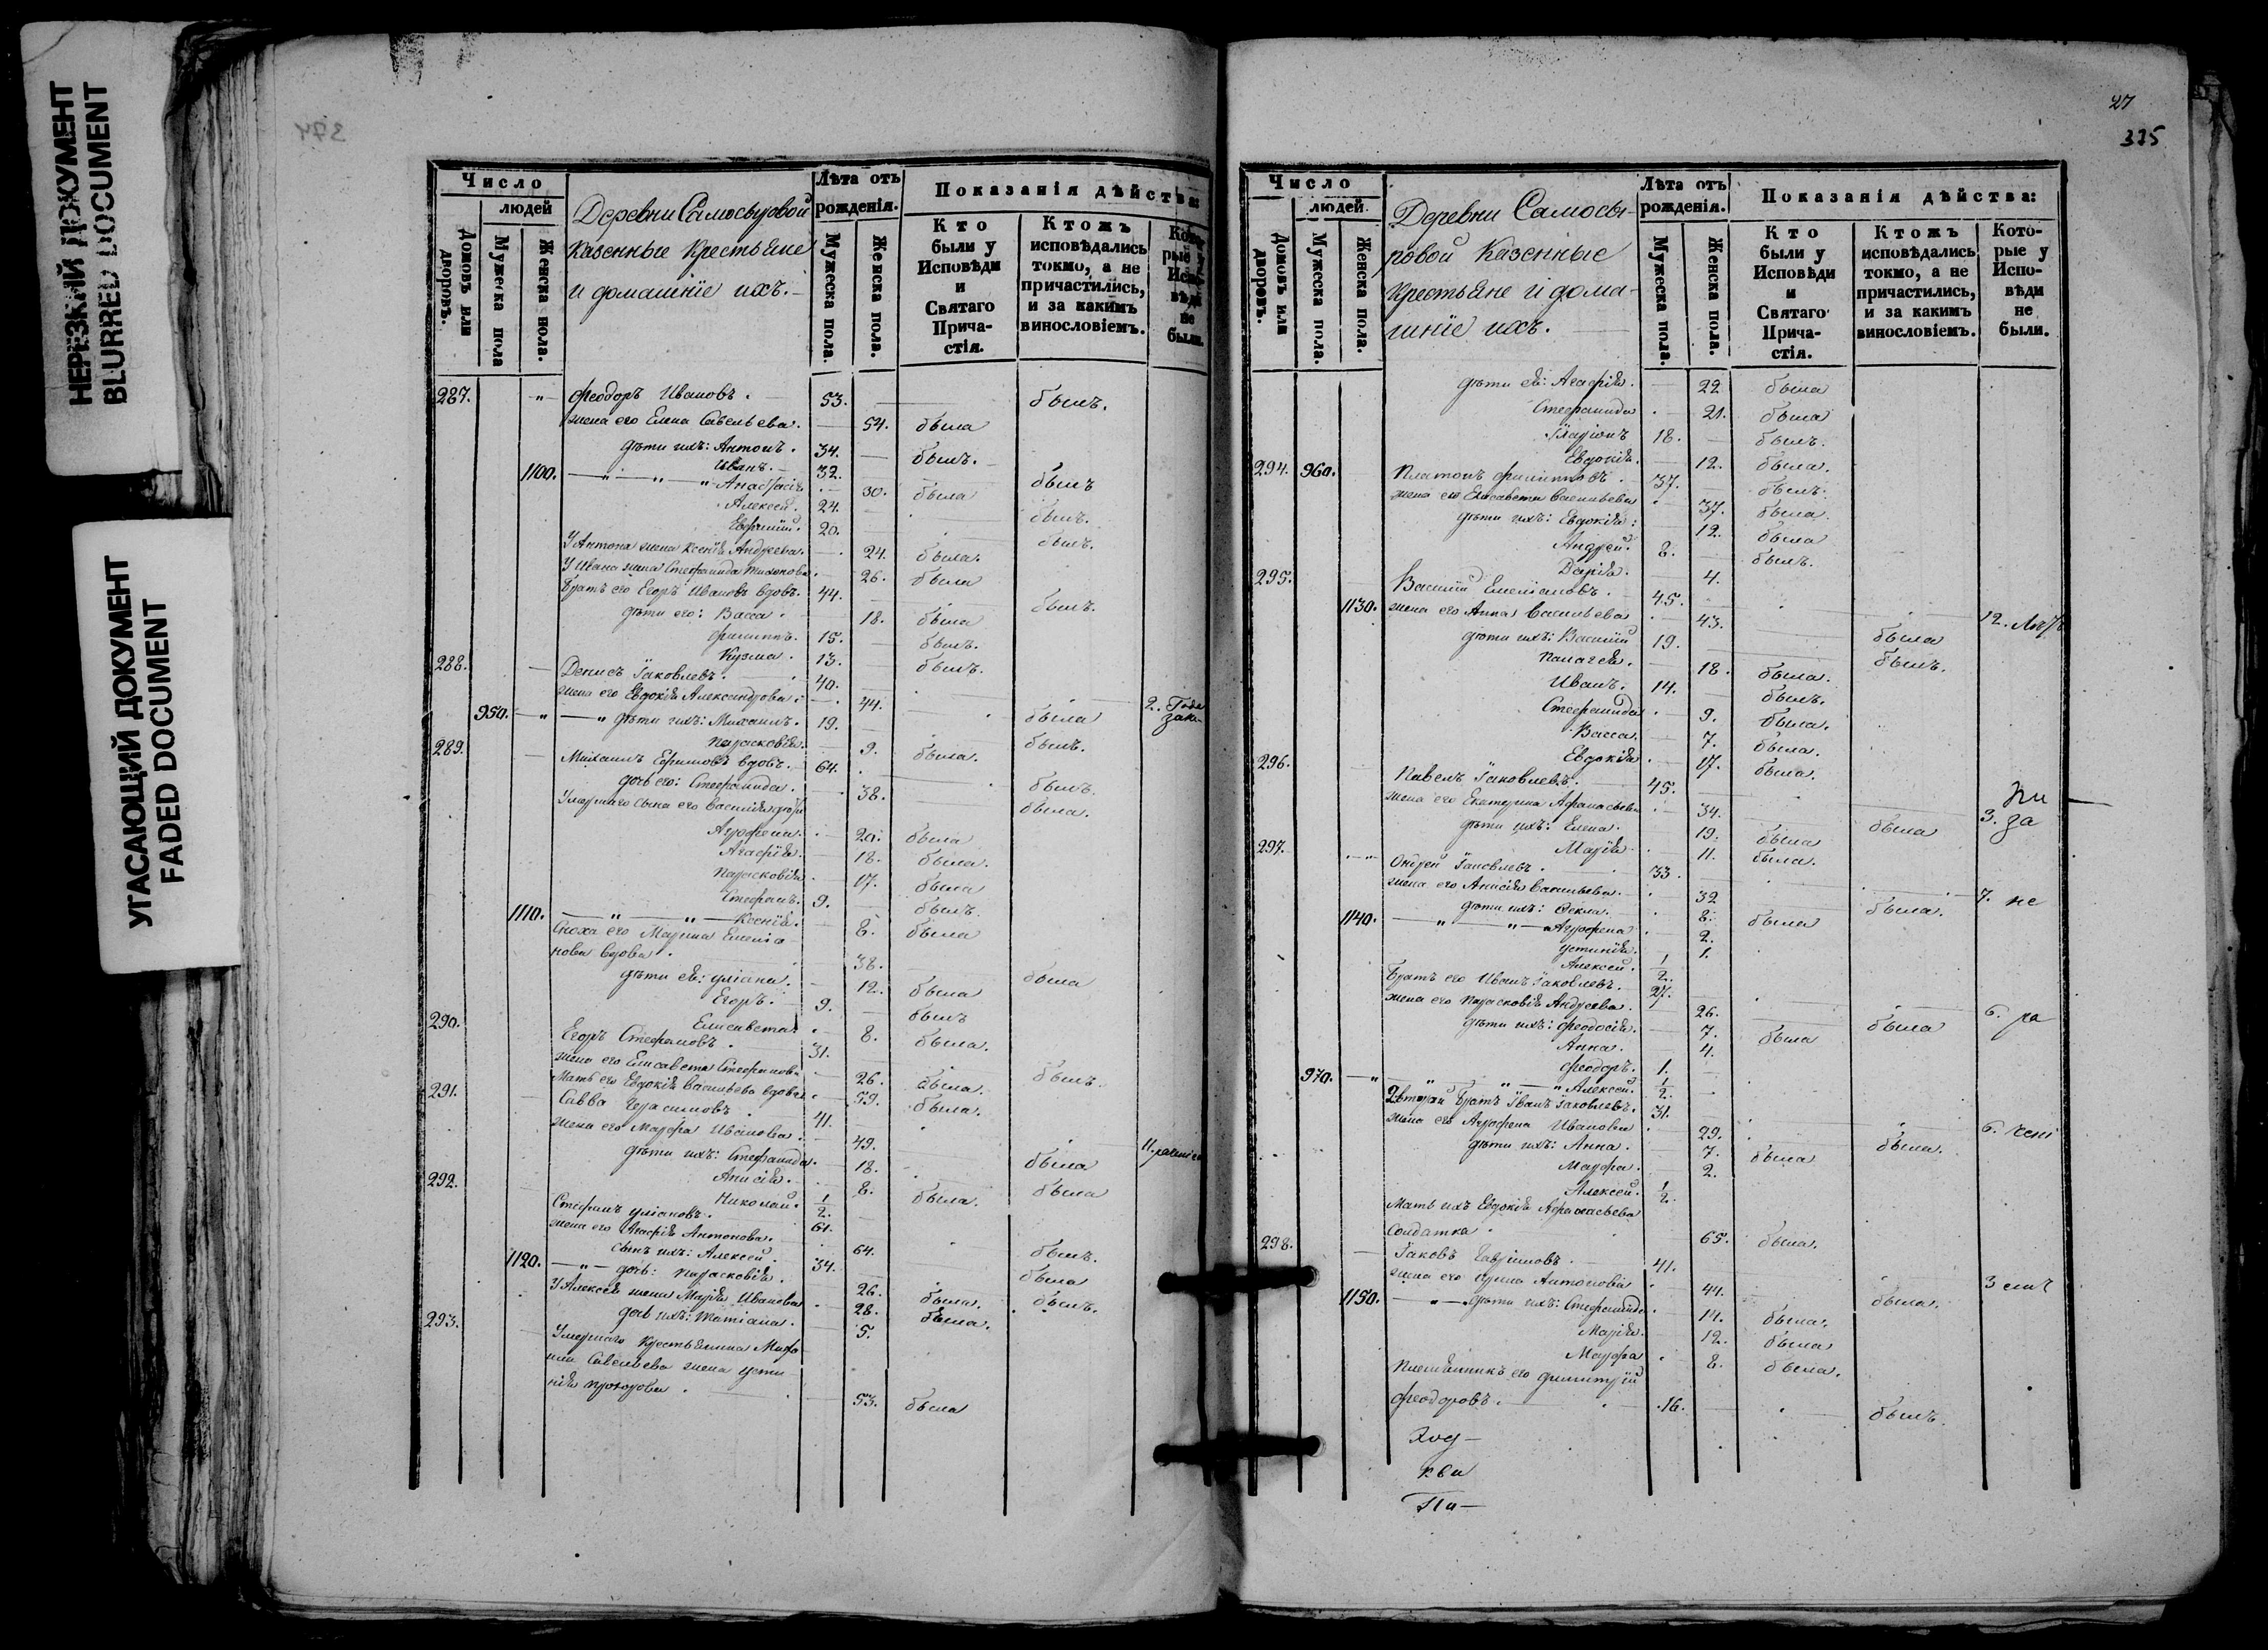 НЕРЕЗКИЙ ДОКУМЕНТ
BLURRED DOCUMENT
УГАСАЮЩИЙ ДОКУМЕНТ
FADED DOCUMENT
374
Число
людей
Домовъ или дворовъ.
Мужеска пола
Женска пола.
Деревни Самосыровой
Казенные Крестьяне
и домашніе ихъ.
Лѣта отъ рожденія.
Мужеска пола.
Женска пола.
Показанія дѣйства:
Кто были у Исповѣди и Святаго Прича-стія.
Ктожъ исповѣдались токмо, а не причастились, и за какимъ винословіемъ.
Кото-рые у Испо-вѣди не были.
287. Феодоръ Ивановъ. 53. былъ.
жена его Елена Савельева. 54. была
дѣти ихъ: Антонъ. 34. былъ.
Иванъ. 32. былъ
1100. Анастасія 30. была
Алексей. 24. былъ.
Ефимій. 20. былъ.
У Антона жена Ксенія Андреева. 24. была.
У Ивана жена Стефанида 26. была
Братъ его Егоръ Ивановъ вдовъ. 44. былъ.
дѣти его: Васса. 18. была
Филиппъ. 15. былъ.
Кузма. 13. былъ.
288. Денисъ Іаковлевъ. 40. 2.
жена его Евдокія Александрова. 44. была
950. дѣти ихъ: Михаилъ. 19. былъ.
Парасковія. 9. была.
289. Михаилъ Ефимовъ вдовъ. 64. былъ.
дочь его: Стефанида. 38. была.
Умершаго сына его Василія
Агрофена. 20. была
Агафія. 18. была.
Парасковія 17. была
Стефанъ. 9. былъ.
1110. Ксенія. 8. была
Сноха его Марина Емелiа-
нова вдова. 38. была
дѣти ея: Уліана. 12. была
Егоръ. 9. былъ
Елисавета. 8. была.
290. Егоръ Стефановъ. 31. былъ.
жена его Елисавета Стефанова 26. была.
Мать его Евдокія Васильева вдова 59. была.
291. Савва Герасимовъ. 41. 11.
жена его Марфа Иванова. 49. была
дѣти ихъ: Стефанида. 18. была
Анисія. 8. была.
Николай. 1/2.
292. Стефанъ Уліановъ. 61. былъ.
жена его Агафія Антонова. 64. была
сынъ ихъ: Алексей. 34. былъ.
1120. дочь: Парасковія. 26. была.
У Алексея жена Марія Иванова 28. была.
дочь ихъ: Татіана. 5.
293. Умершаго Крестьянина
Савельева жена Усти-
нія Прохорова. 53. была
27
375
Число
людей
Домовъ или дворовъ.
Мужеска пола.
Женска пола.
Деревни Самосы-
ровой Казенные
Крестьяне и дома-
шніе ихъ.
Лѣта отъ рожденія.
Мужеска пола.
Женска пола.
Показанія дѣйства:
Кто были у Исповѣди и Святаго Прича-стія.
Ктожъ исповѣдались токмо, а не причастились, и за какимъ винословіемъ.
Кото-рые у Испо-вѣди не были.
дѣти ея: Агафія. 22. была
Стефанида 21. была
Иларіонъ 18. былъ.
Евдокія. 12. была.
294. 960. Платонъ Филипповъ. 37. былъ.
жена его Елисавета Васильева 37. была.
дѣти ихъ: Евдокія: 12. была
Андрей. 8. былъ.
Дарія. 4.
295. Василій Емеліановъ. 45. 12.
1130. жена его Анна Васильева 43. была
дѣти ихъ: Василій 19. былъ.
Палагея. 18. была.
Иванъ. 14. былъ.
Стефанида 9. была.
Васса. 7. была.
Евдокія 17. была.
296. Павелъ Іаковлевъ. 45. 3. за
жена его Екатерина Афанасьева 34. была
дѣти ихъ: Елена. 19. была
Марія. 11. была.
297. Андрей Іаковлевъ. 33. 7. не
жена его Анисія Васильева. 32 была.
дѣти ихъ: Фекла. 8. была
1140. Агрофена 2.
Устинія. 1.
Алексей. 1/2.
Братъ его Иванъ Іаковлевъ. 27. 6. ра
жена его Парасковія Андреева. 26. была
дѣти ихъ: Феодосія. 7. была
Анна. 4.
Феодоръ. 1.
970. Алексей. 1/2.
2 Вторый Братъ Іванъ Іаковлевъ. 31. 6.
жена его Агрофена Иванова 29. была.
дѣти ихъ: Анна. 7. была
Марфа. 2.
Алексей. 1/2.
Мать ихъ Евдокія Афанасьева
Солдатка 65. была.
298. Іаковъ 41. 3
жена его Ирина Антонова 44. была.
1150. дѣти ихъ: Стефанида. 14. была.
Марія. 12. была
Марфа 8. была.
Племянникъ его Димитрій
Феодоровъ. 16. былъ.